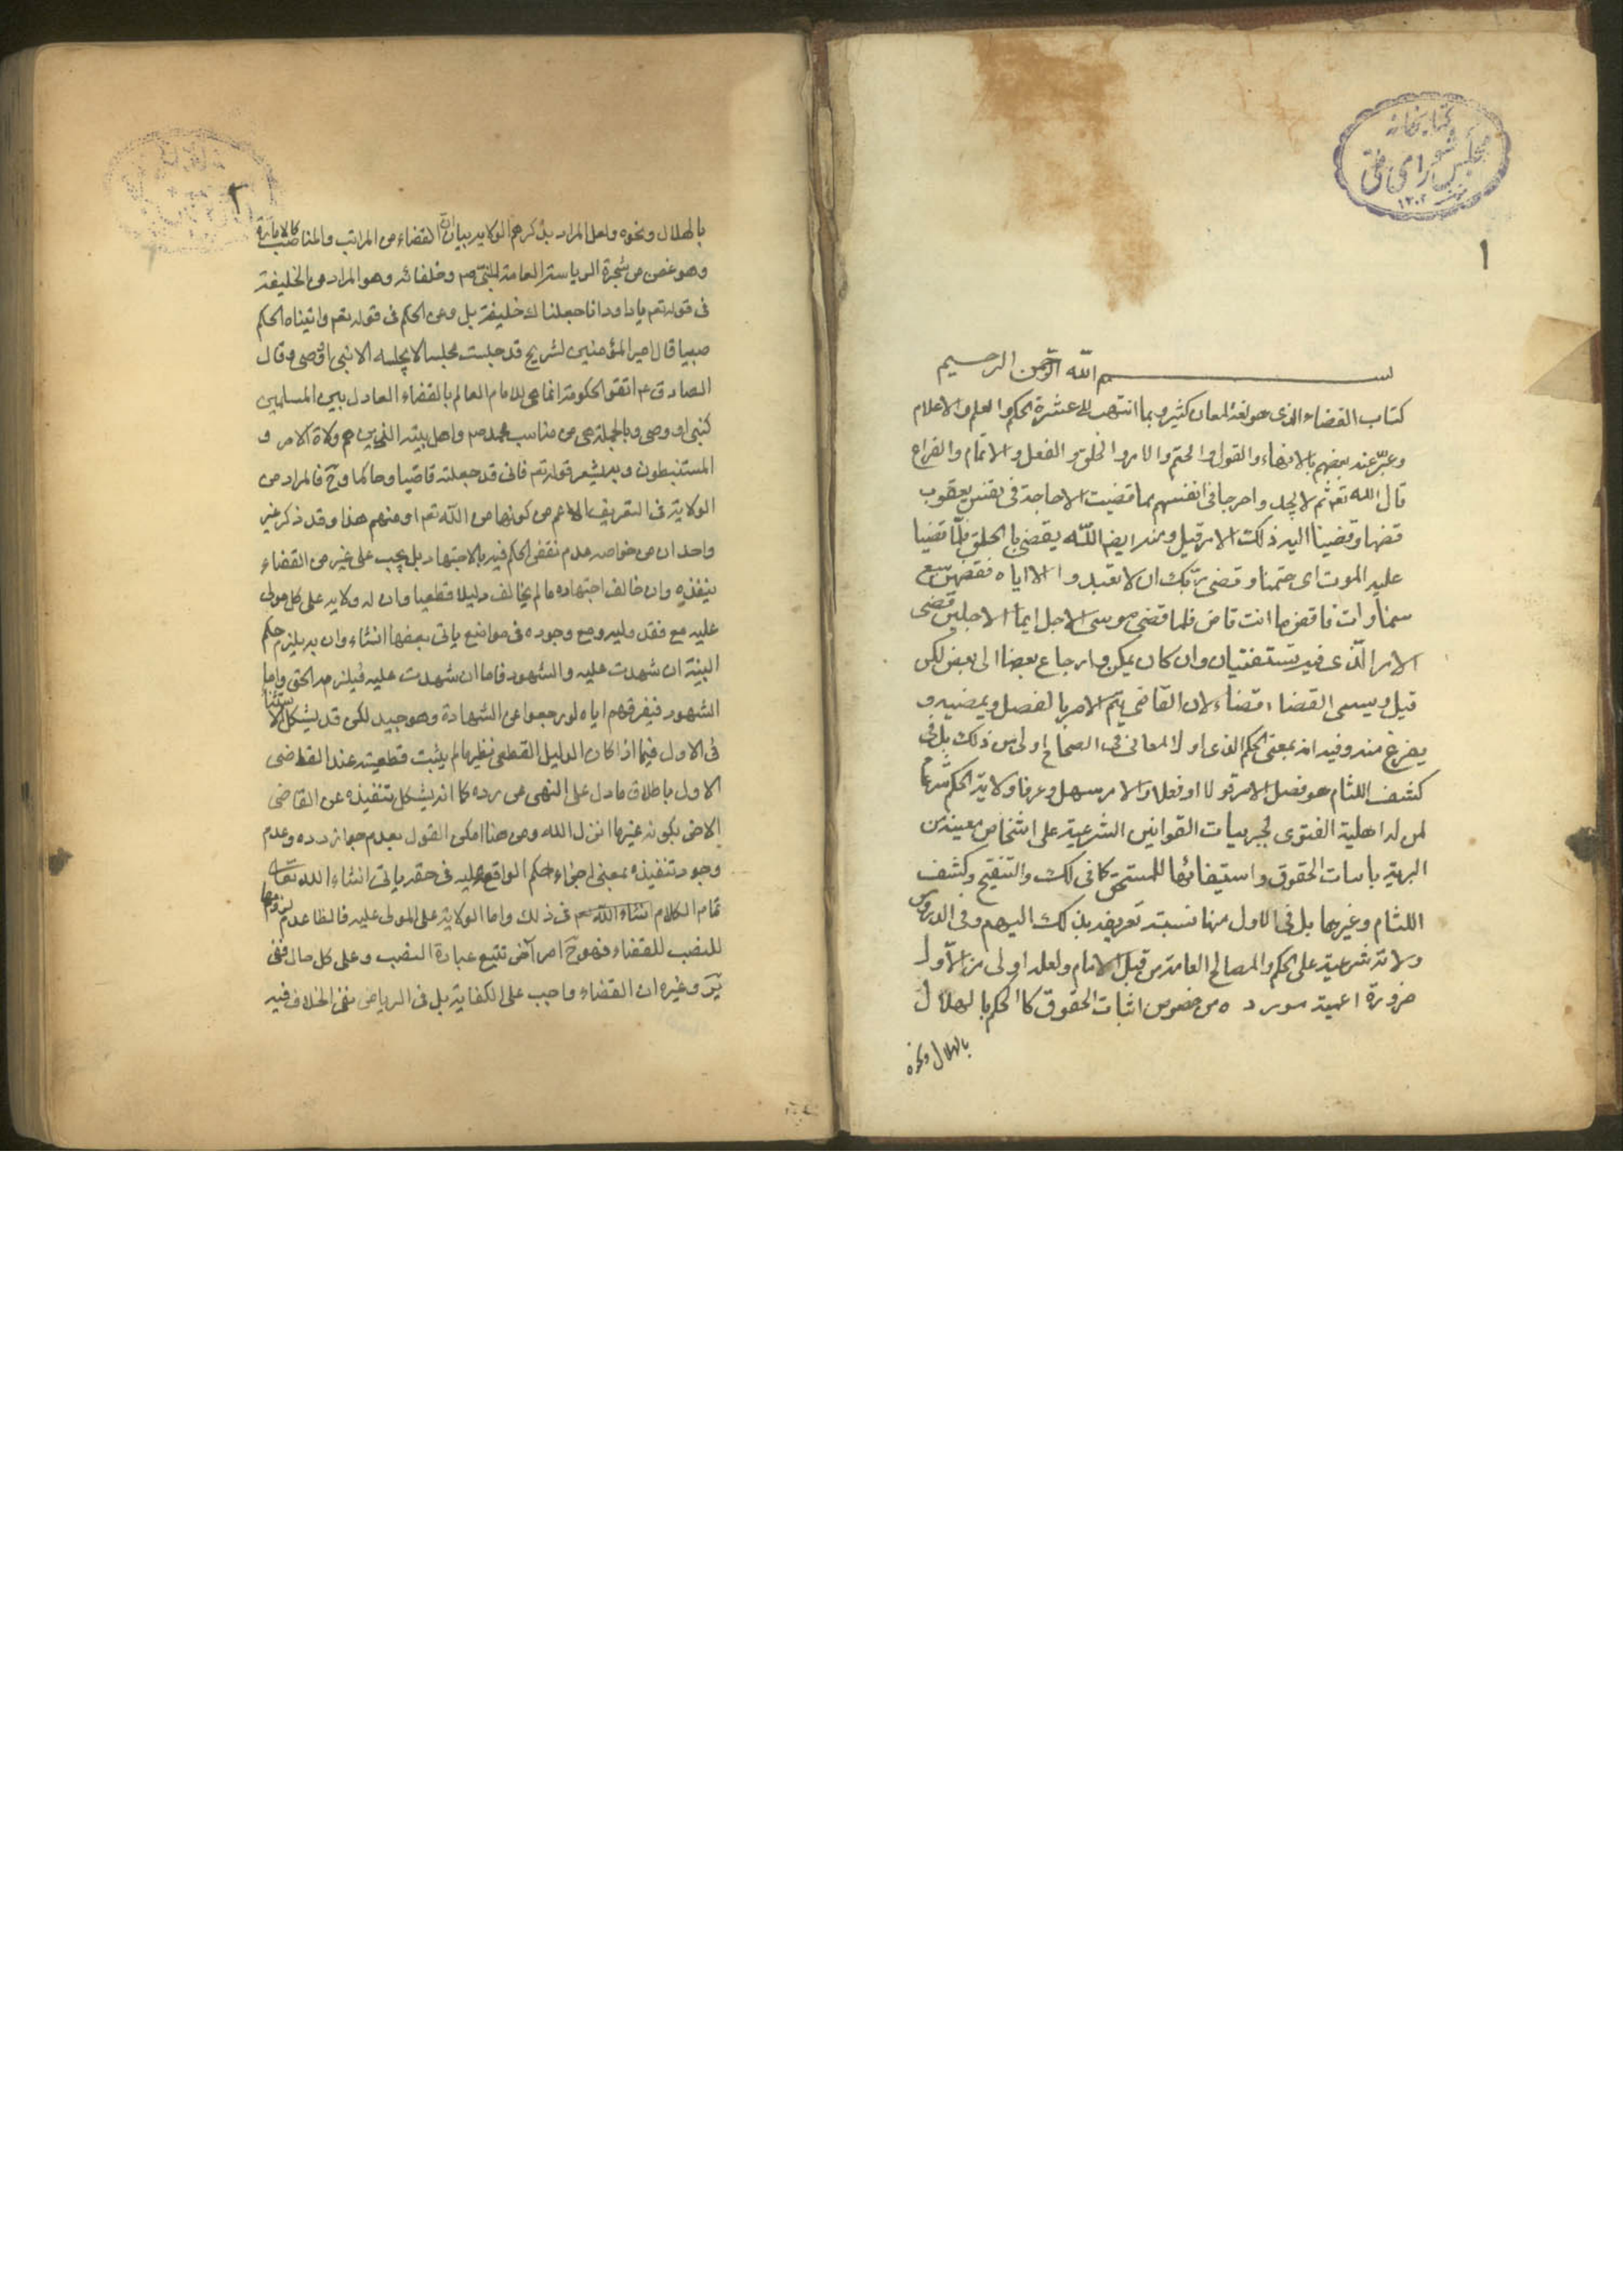 كتابخانه
مجلس شورای ملی
١٣٠٢
١
بسم الله الرحمن الرحيم
كتاب القضاء الذى هو لغة لمعان كثيرة ربما انتهت الى عشرة الحكم والعلم والاعلام
وعبر عنه بعضهم بالانهاء والقول والحتم والامر والخلق والفعل والاتمام والفراغ
قال الله تعم ثم لا يجدوا حرجا فى انفسهم مما قضيت الا حاجة فى نفس يعقوب
قضها وقضينا اليه ذلك الامر قيل ومنه ايضا الله يقضى بالحق فلما قضينا
عليه الموت اى حتمنا وقضى ربك ان لا تعبدوا الا اياه فقضهن سبع
سموات فاقض ما انت قاض فلما قضى موسى الاجل ايما الاجلين قضى
الامر الذى فيه تستفتيان وان كان يمكن ارجاع بعضها الى بعض لكن
قيل ويسمى القضاء قضاء لان القاضى يتم الامر بالفصل ويمضيه و
يفرغ منه وفيه انه بمعنى الحكم الذى اول المعانى فى الصحاح اولى من ذلك بل فى
كشف اللثام هو فصل الامر قولا او فعلا والامر سهل وعرفا ولاية الحكم شرعا
لمن له اهلية الفتوى بجزييات القوانين الشرعية على اشخاص معينة من
البرية باثبات الحقوق واستيفائها للمستحق كما فى لك والتنقيح وكشف
اللثام وغيرها بل فى الاول منها نسبة تعريفه بذلك اليهم وفى الدروس
ولاية شرعية على الحكم والمصالح العامة من قبل الامام ولعله اولى من الاول
ضرورة اعمية مورده من خصوص اثبات الحقوق كالحكم بالهلال
بالهلال ونحوه
٢
بالهلال ونحوه ولعل المراد بذكرهم الولاية بيان ان القضاء من المراتب والمناصب كالامارة
وهو غصن من شجرة الرياسة العامة للنبى ص وخلفائه وهو المراد من الخليفة
فى قوله تعم يا داود انا جعلناك خليفة بل ومن الحكم فى قوله تعم واتيناه الحكم
صبيا قال امير المؤمنين لشريح قد جلست مجلسا لا يجلسه الا نبى او وصى وقال
الصادق ع اتقو الحكومة انما هى للامام العالم بالقضاء العادل بين المسلمين
كنبى او وصى وبالجملة هى من مناسب محمد ص واهل بيته الذين هم ولاة الامر و
المستنبطون وبه يشعر قوله تعم فانى قد جعلته قاضيا وحاكما وح فالمراد من
الولاية فى التعريف الاعم من كونها من الله تعم او منهم هذا وقد ذكر غير
واحد ان من خواصه عدم نقض الحكم فيه بالاجتهاد بل يجب على غيره من القضاء
تنفيذه وان خالف اجتهاده ما لم يخالف دليلا قطعيا وان له ولايه على كل مولى
عليه مع فقد وليه ومع وجوده فى مواضع ياتى بعضها انشاء وان به يلزم حكم
البينة ان شهدت عليه والشهود فاما ان شهدت عليه فيلزمه الحق واما
الشهود فيغرمهم اياه لو رجعوا عن الشهادة وهو جيد لكن قد يشكل الاستثناء
فى الاول فيما اذا كان الدليل القطعى نظريا لم يثبت قطعيته عند القاضى
الاول باطلاق ما دل على النهى عن رده كما انه يشكل تنفيذه عن القاضى
الاخر بكونه غير ما انزل الله ومن هنا امكن القول بعدم جواز رده وعدم
وجود تنفيذه بمعنى اجراء حكم الواقع عليه فى حقه ياتى انشاء الله تعالى
تمام الكلام انشاء الله فى ذلك واما الولاية على المولى عليه فالظا عدم لزومها
للنصب للقضاء فهو ح امر آخر تتبع عبارة النصب وعلى كل حال ففى
ير وغيره ان القضاء واجب على الكفاية بل فى الرياض نفى الخلاف فيه